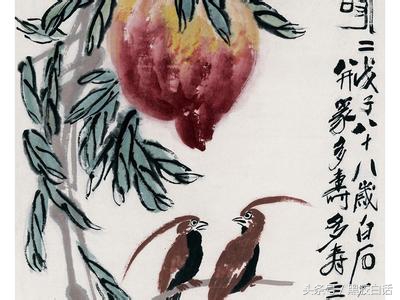 二戊子八十八歲白石
并篆多壽多壽
头条号 / 白话